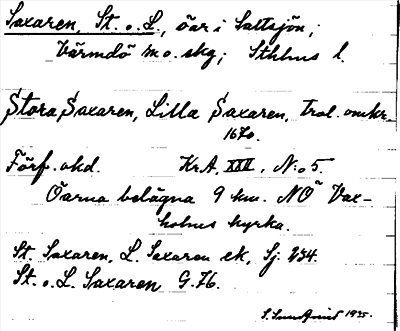 Saxaren, St. o. L., öar i Saltsjön;
Värmdö m o. skg; Sthlms l.
Stora Saxaren, Lilla Saxaren, trol. omkr.
1670.
Förf. okd. Kr.A. XXII, N:o 5.
Öarna belägna 9 km. NÖ Vax-
holms kyrka.
St. Saxaren, L. Saxaren ek, Sj. 234.
St. o. L. Saxaren G. 76.
1935.